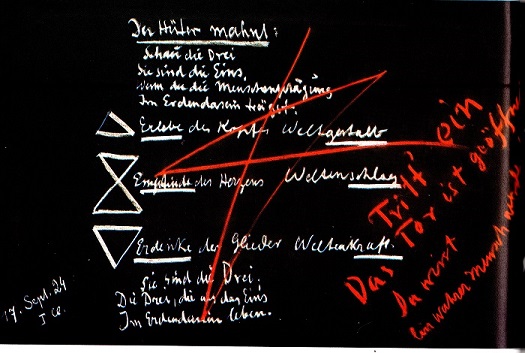 Der Hüter mahnt:
Schau die Drei
Sie sind die Eins,
Wenn du die Menschenprägung
Im Erdendasein trägst:
Erlebe des Kopfes Weltgestalt
Empfinde des Herzens Weltenschlag
Erdenke der Glieder Weltenkraft.
Sie sind die Drei.
Die Drei, die als das Eins
Im Erdendasein leben.
17. Sept. 24
Tritt ein
Das Tor ist geöffn
Du wirst
Ein wahrer Mensch